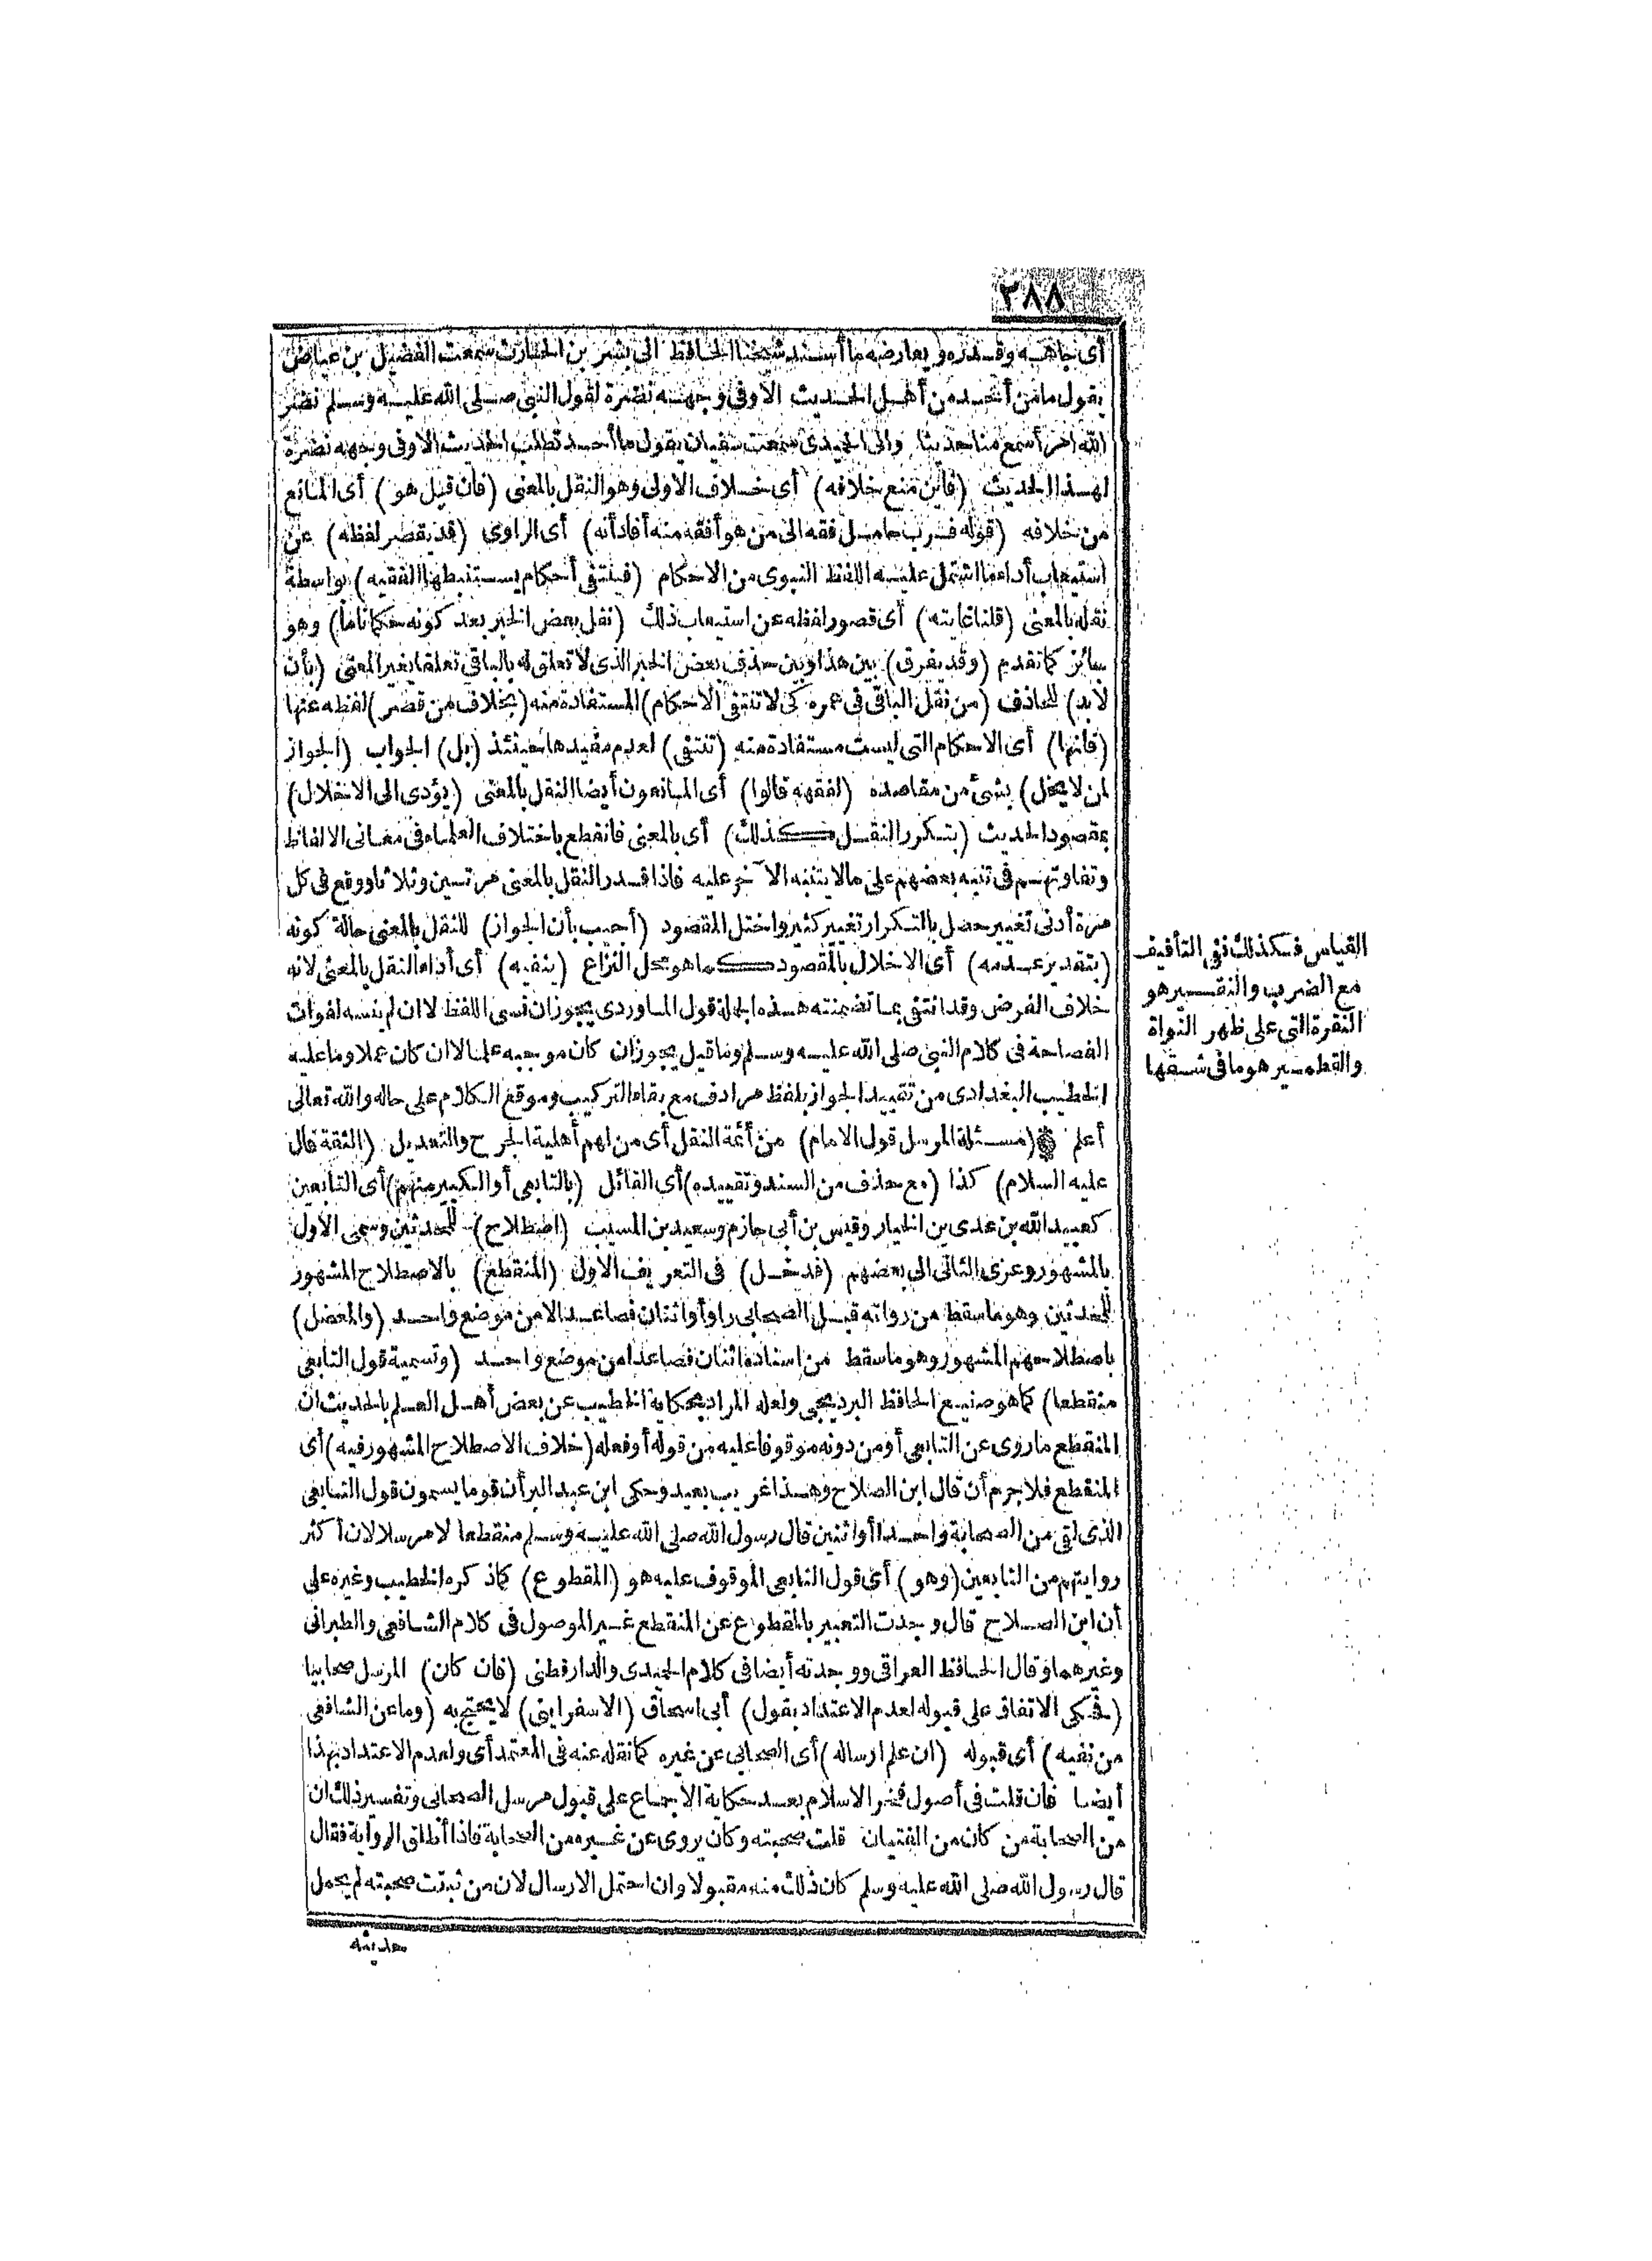 ٢٨٨
أى جاهه وقدره ويعارضه ما أسند شيخنا الحافظ الى بشر بن الحارث سمعت الفضيل بن عياض
يقول ما من أحد من أهل الحديث الا وفى وجهه نضرة لقول النبى صلى الله عليه وسلم نضر
الله امرأ سمع منا حديثا والى الحميدى سمعت سفيان يقول ما أحد تطلب الحديث الا وفى وجهه نضرة
لهذا الحديث (فأين منع خلافه) أى خلاف الاولى وهو النقل بالمعنى (فان قيل هو) أى المانع
من خلافه (قوله فرب حامل فقه الى من هو أفقه منه أفاد أنه) أى الراوى (قد يقصر لفظه) عن
استيعاب أداء ما اشتمل عليه اللفظ النبوى من الاحكام (فينتفى أحكام يستنبطها الفقيه) بواسطة
نقله بالمعنى (قلنا غايته) أى قصور لفظه عن استيعاب ذلك (نقل بعض الخبر بعد كونه حكما تاما) وهو
جائز كما تقدم (وقد يفرق) بين هذا وبين حذف بعض الخبر الذى لا تعلق له بالباقى تعلقا يغير المعنى (بأن
لا بد) للحاذف (من نقل الباقى فى عمره كى لا تنتفى الاحكام) المستفادة منه (بخلاف من قصر) لفظه عنها
(فانها) أى الاحكام التى ليست مستفادة منه (تنتفى) لعدم مفيدها حينئذ (بل) الجواب (الجواز
لمن لا يخل) بشئ من مقاصده (لفقهه قالوا) أى المانعون أيضا النقل بالمعنى (يؤدى الى الاخلال)
بمقصود الحديث (بتكرر النقل كذلك) أى بالمعنى فانقطع باختلاف العلماء فى معانى الالفاظ
وتفاوتهم فى تنبه بعضهم على ما لا يتنبه الآخر عليه فاذا قدر النقل بالمعنى مرتين وثلاثا ووقع فى كل
مرة أدنى تغيير حصل بالتكرار تغيير كثير واختل المقصود (أجيب بأن الجواز) للنقل بالمعنى حالة كونه
(بتقدير عدمه) أى الاخلال بالمقصود كما هو محل النزاع (ينفيه) أى أداء النقل بالمعنى لانه
خلاف الفرض وقد انتفى بما تضمنته هذه الجملة قول الماوردى يجوز ان نسى اللفظ لا ان لم ينسه لفوات
الفصاحة فى كلام النبى صلى الله عليه وسلم وما قيل يجوز ان كان موجبه علما لا ان كان عملا وما عليه
الخطيب البغدادى من تقييد الجواز بلفظ مرادف مع بقاء التركيب وموقع الكلام على حاله والله تعالى
أعلم (مسئلة المرسل قول الامام) من أئمة النقل أى من لهم أهلية الجرح والتعديل (الثقة قال
عليه السلام) كذا (مع حذف من السند وتقييده) أى القائل (بالتابعى أو الكبير منهم) أى التابعين
كعبيد الله بن عدى بن الخيار وقيس بن أبى حازم وسعيد بن المسيب (اصطلاح) للمحدثين وسمى الاول
بالمشهور وعزى الثانى الى بعضهم (فدخل) فى التعريف الاول (المنقطع) بالاصطلاح المشهور
للمحدثين وهو ما سقط من رواته قبل الصحابى راو أو اثنان فصاعدا لا من موضع واحد (والمعضل)
باصطلاحهم المشهور وهو ما سقط من اسناده اثنان فصاعدا من موضع واحد (وتسمية قول التابعى
منقطعا) كما هو صنيع الحافظ البرديجى ولعله المراد بحكاية الخطيب عن بعض أهل العلم بالحديث ان
المنقطع ما روى عن التابعى أو من دونه موقوفا عليه من قوله أو فعله (خلاف الاصطلاح المشهور فيه) أى
المنقطع فلا جرم أن قال ابن الصلاح وهذا غريب بعيد وحكى ابن عبد البر أن قوما يسمون قول التابعى
الذى لقى من الصحابة واحدا أو اثنين قال رسول الله صلى الله عليه وسلم منقطعا لا مرسلا لان أكثر
روايتهم من التابعين (وهو) أى قول التابعى الموقوف عليه هو (المقطوع) كما ذكره الخطيب وغيره على
أن ابن الصلاح قال وجدت التعبير بالمقطوع عن المنقطع غير الموصول فى كلام الشافعى والطبرانى
وغيرهما وقال الحافظ العراقى ووجدته أيضا فى كلام الحميدى والدارقطنى (فان كان) المرسل صحابيا
(فحكى الاتفاق على قبوله لعدم الاعتداد بقول) أبى اسحاق (الاسفراينى) لا يحتج به (وما عن الشافعى
من نفيه) أى قبوله (ان علم ارساله) أى الصحابى عن غيره كما نقله عنه فى المعتمد أى ولعدم الاعتداد بهذا
أيضا فان قلت فى أصول فخر الاسلام بعد حكاية الاجماع على قبول مرسل الصحابى وتفسير ذلك ان
من الصحابة من كان من الفتيان قلت صحبته وكان يروى عن غيره من الصحابة فاذا أطلق الرواية فقال
قال رسول الله صلى الله عليه وسلم كان ذلك منه مقبولا وان احتمل الارسال لان من ثبتت صحبته لم يحمل
حديثه
القياس فكذلك نفى التأفيف
مع الضرب والنقير هو
النقرة التى على ظهر النواة
والقطمير هو ما فى شقها